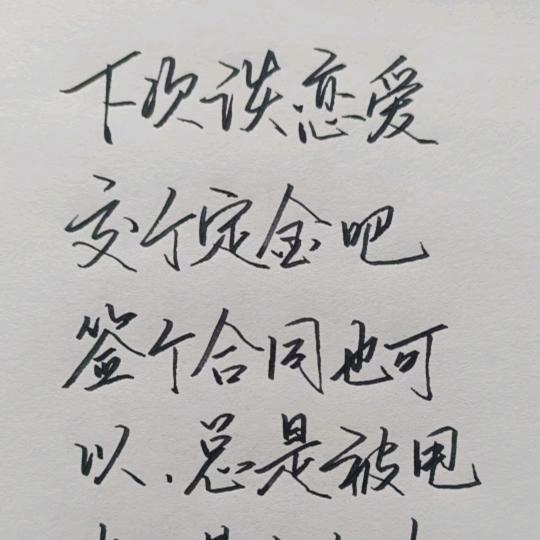 下次谈恋爱
交个定金吧
签个合同也可
以.总是被甩